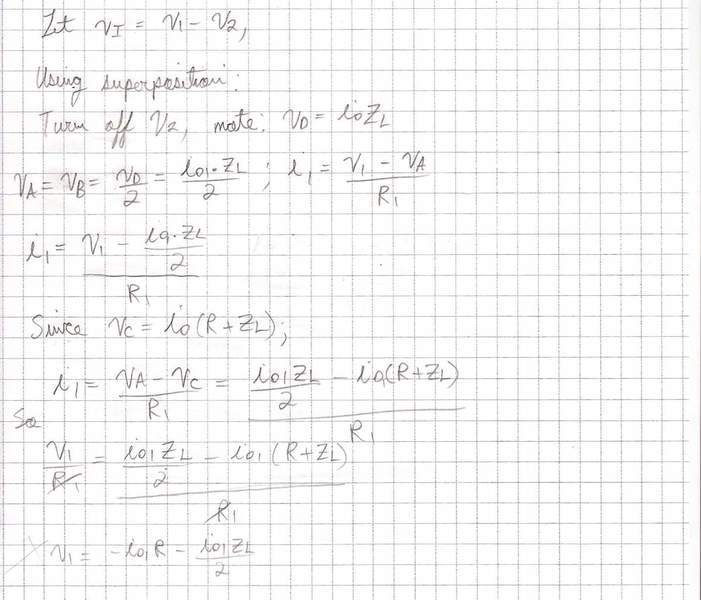 Let v_I = v_1 - v_2,
Using superposition:
Turn off v_2, note: v_D = i_o Z_L
v_A = v_B = v_D/2 = i_o1·Z_L/2 ; i_1 = (v_1 - v_A)/R_1
i_1 = (v_1 - i_o1·Z_L/2)/R_1
Since v_C = i_o(R+Z_L);
i_1 = (v_A - v_C)/R_1 = (i_o1 Z_L/2 - i_o1(R+Z_L))/R_1
So
v_1/R_1 = (i_o1 Z_L/2 - i_o1(R+Z_L))/R_1
v_1 = -i_o1 R - i_o1 Z_L/2